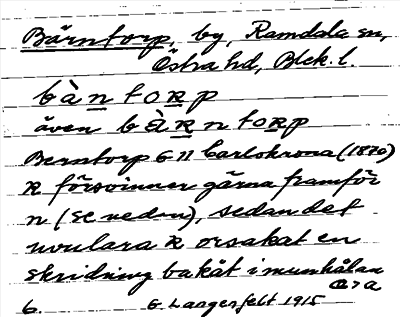 Bärntorp, by, Ramdala sn,
Östra hd, Blek. l.
bàn torp
även bàrn torp
Berntorp G II Carlskrona (1870)
R försvinner gärna framför
n (se nedan), sedan det
uvulara R orsakat en
skridning bakåt i munhålan
a > a
6. E. Langerfelt 1915